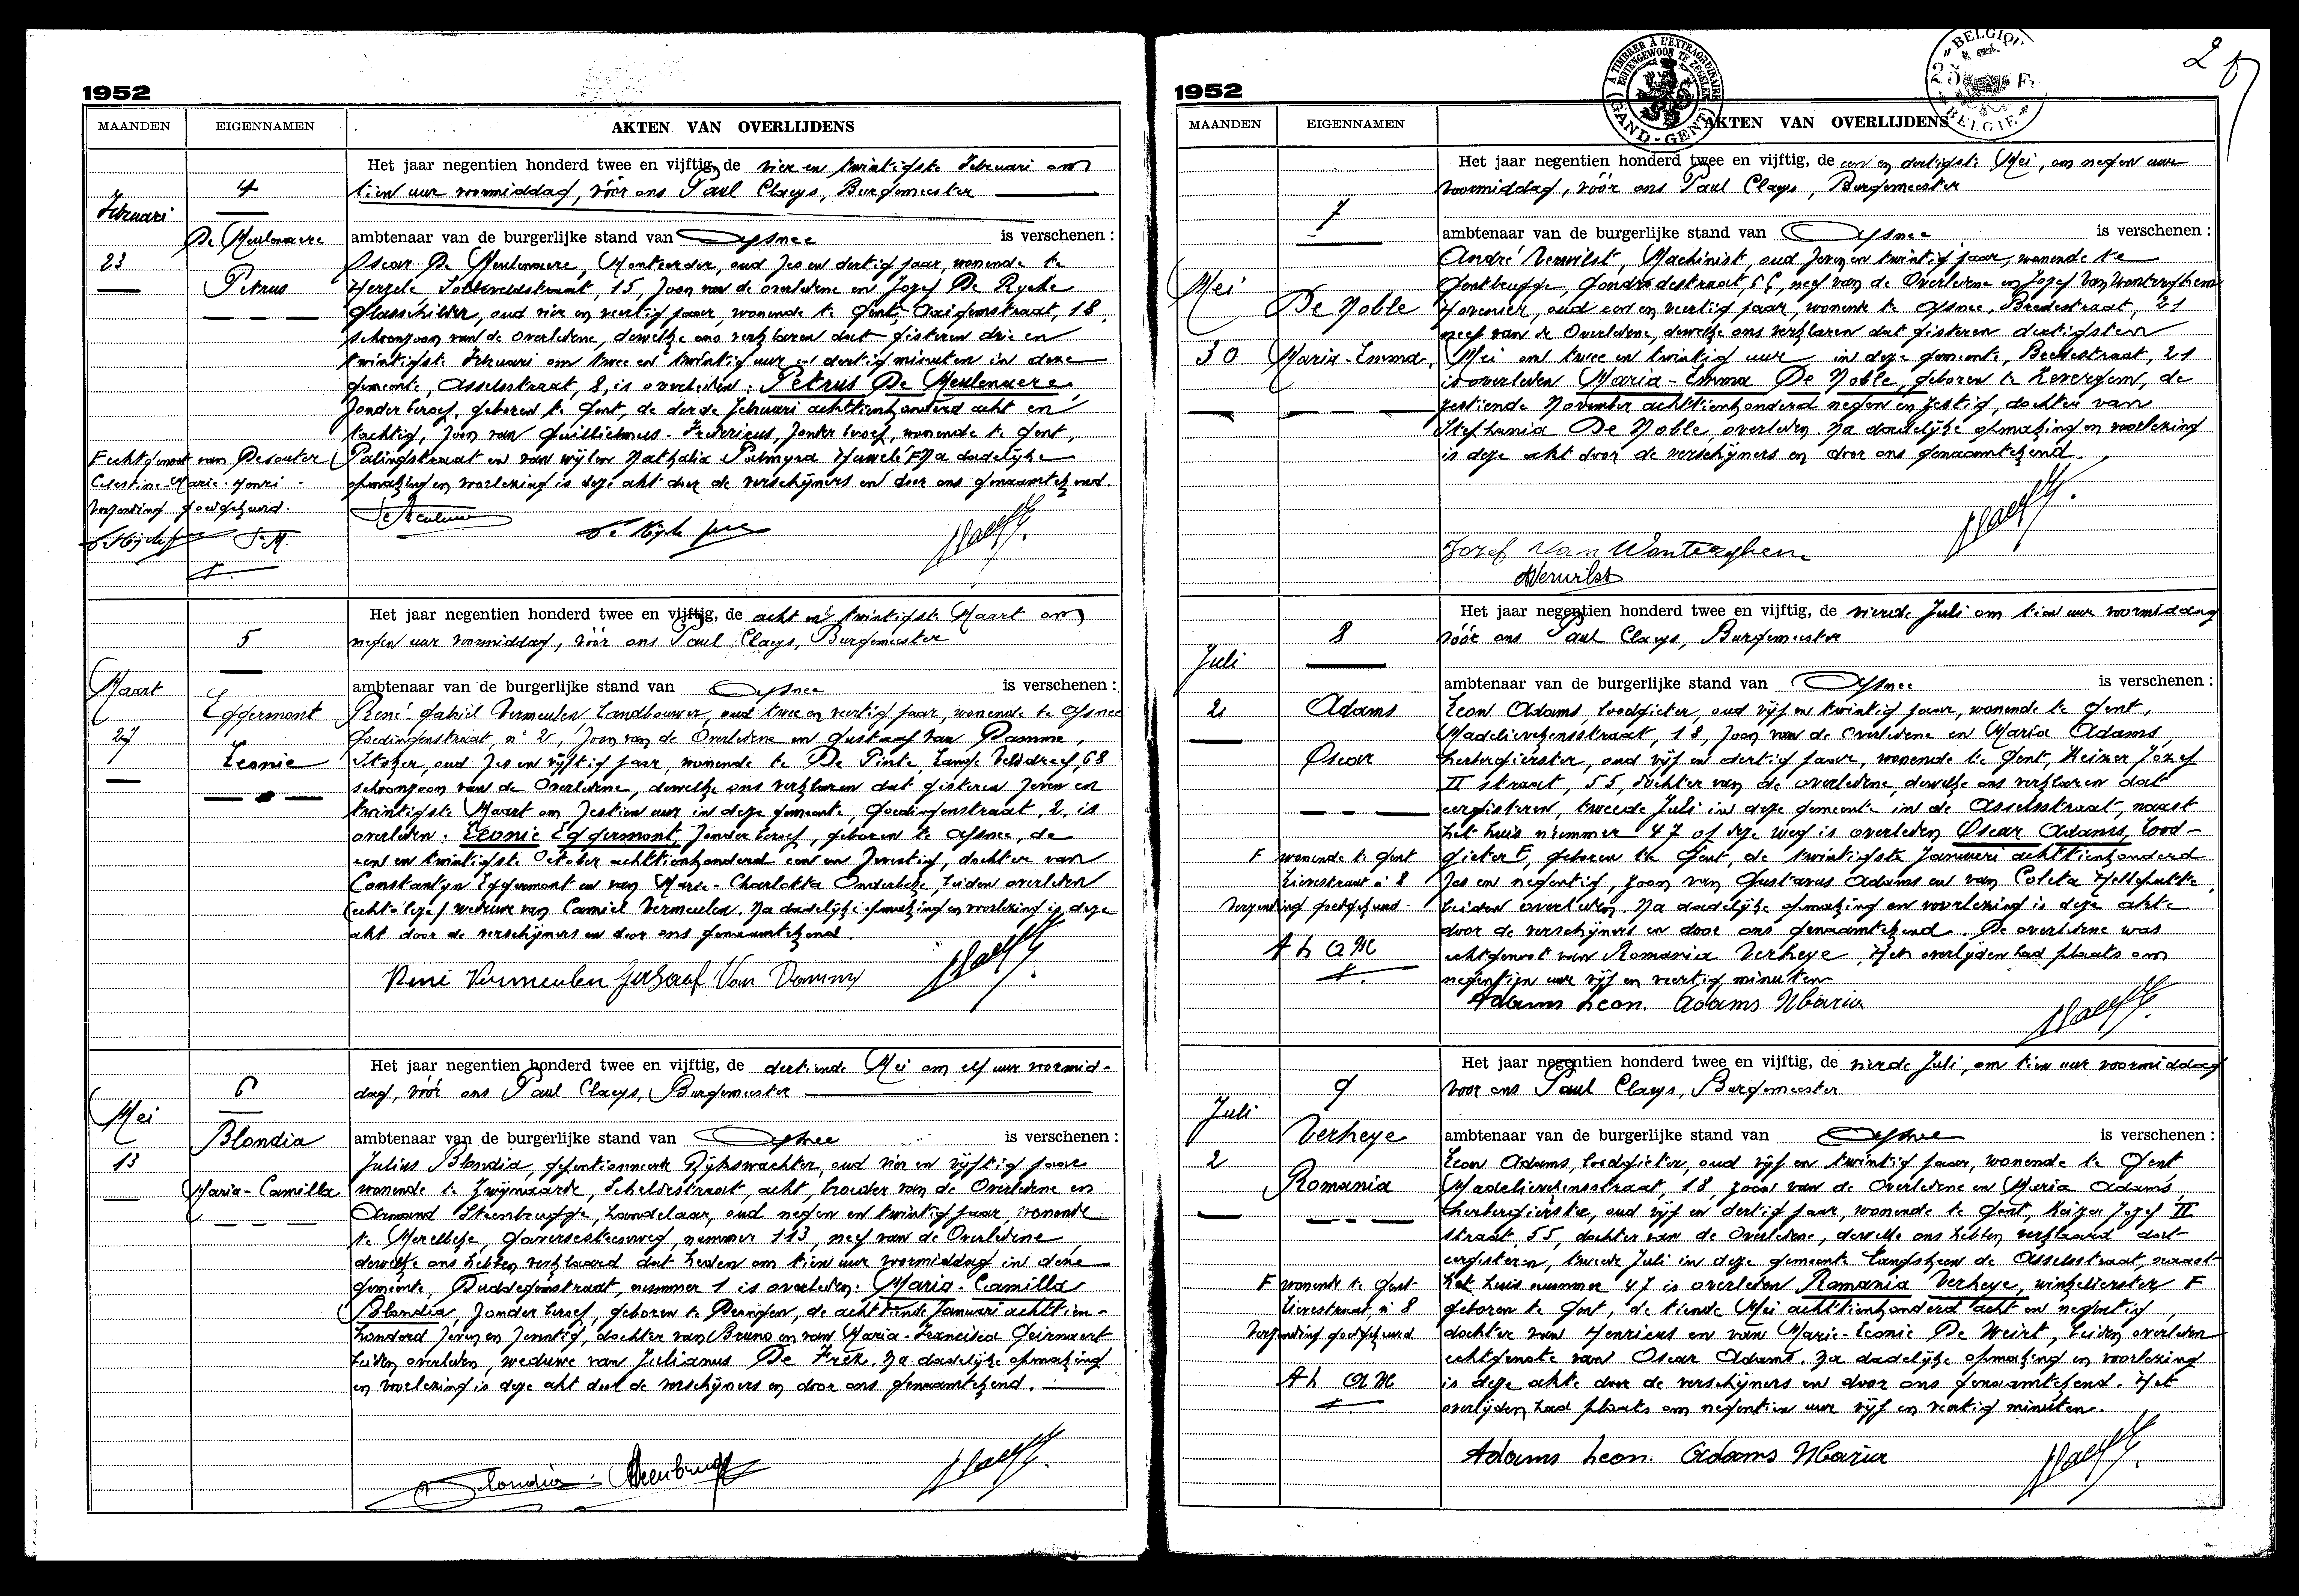 1952
MAANDEN
EIGENNAMEN
AKTEN VAN OVERLIJDENS
Februari
23
4
De Meulenaere
Petrus
Het jaar negentien honderd twee en vijftig, de vier en twintigste Februari om
tien uur voormiddag, vóór ons Paul Claeys, Burgemeester
ambtenaar van de burgerlijke stand van Afsnee is verschenen :
Oscar De Meulenaere, Monteerder, oud zes en dertig jaar, wonende te
Herzele straat, 15, zoon van de overledene en Jozef De Rycke
Glasschilder, oud vier en veertig jaar, wonende te Gent, straat, 18,
schoonzoon van de overledene, dewelke ons verklaren dat gisteren drie en
twintigste Februari om twee en twintig uur en dertig minuten in deze
gemeente, Asselsstraat, 8, is overleden : Petrus De Meulenaere,
zonder beroep, geboren te Gent, de derde Februari achttienhonderd acht en
tachtig, zoon van Guillielmus-Fredericus, zonder beroep, wonende te Gent,
Palingstraat en van wijlen Nathalia Palmyra F Na dadelijke
opmaking en voorlezing is deze akt door de verschijners en door ons genaamtekend.
F echtgenoot van Desouter
Celestine-Marie-Henri
Verzending goedgekeurd.
1952
5
Maart
27
Eggermont
Leonie
Het jaar negentien honderd twee en vijftig, de acht en twintigste Maart om
negen uur voormiddag, vóór ons Paul Claeys, Burgemeester
ambtenaar van de burgerlijke stand van Afsnee is verschenen :
René Gabriel Vermeulen Landbouwer, oud twee en veertig jaar, wonende te Afsnee
Goedingenstraat, n° 2, zoon van de Overledene en Gustaaf Van Damme,
Stoker, oud zes en vijftig jaar, wonende te De Pinte, Lange Velddreef, 68
schoonzoon van de Overledene, dewelke ons verklaren dat gisteren zeven en
twintigste Maart om zestien uur in deze gemeente, Goedingenstraat, 2, is
overleden : Leonie Eggermont, zonder beroep, geboren te Afsnee, de
een en twintigste October achttienhonderd een en zeventig, dochter van
Constantyn Eggermont en van Marie-Charlotta Onderbeke, beiden overleden
weduwe van Camiel Vermeulen. Na dadelijke opmaking en voorlezing is deze
akt door de verschijners en door ons genaamtekend.
René Vermeulen Gustaaf Van Damme
6
Mei
13
Blondia
Maria-Camilla
Het jaar negentien honderd twee en vijftig, de dertiende Mei om elf uur voormid-
dag, vóór ons Paul Claeys, Burgemeester
ambtenaar van de burgerlijke stand van Afsnee is verschenen :
Julius Blondia, gepentionneerde Rijkswachter, oud vier en vijftig jaar
wonende te Zwijnaarde, Scheldestraat, acht, broeder van de Overledene en
Armand Steenbrugge, handelaar, oud negen en twintig jaar, wonende
te Merelbeke, Gaversesteenweg, nummer 113, neef van de Overledene
dewelke ons hebben verklaard dat heden om tien uur voormiddag in deze
gemeente, Duddegemstraat, nummer 1 is overleden : Maria-Camilla
Blondia, zonder beroep, geboren te Deurgen, de achttiende Januari achttien-
honderd zeven en zeventig, dochter van Bruno en van Maria-Francisca Geirnaert
beiden overleden, weduwe van Julianus De Frek. Na dadelijke opmaking
en voorlezing is deze akt door de verschijners en door ons genaamtekend.
Blondia Steenbrugge
1952
MAANDEN
EIGENNAMEN
AKTEN VAN OVERLIJDENS
À TIMBRER À L'EXTRAORDINAIRE
BUITENGEWOON TE ZEGELEN
GAND-GENT
BELGIQUE
25 F
BELGIE
7
Mei
30
De Noble
Maria-Emma
Het jaar negentien honderd twee en vijftig, de een en dertigste Mei, om negen uur
voormiddag, vóór ons Paul Claeys, Burgemeester
ambtenaar van de burgerlijke stand van Afsnee is verschenen :
André Verwilst, Machinist, oud zeven en twintig jaar, wonende te
Gentbrugge, Gondrodestraat, neef van de Overledene en Jozef Van Wonterghem
Hovenier, oud een en veertig jaar, wonende te Afsnee, Beekestraat, 21
neef van de Overledene, dewelke ons verklaren dat gisteren dertigsten
Mei om twee en twintig uur in deze gemeente, Beekestraat, 21
is overleden Maria-Emma De Noble, geboren te Zevergem, de
zestiende November achttienhonderd negen en zestig, dochter van
Stephania De Noble, overleden. Na dadelijke opmaking en voorlezing
is deze akt door de verschijners en door ons genaamtekend.
Jozef Van Wonterghem
AVerwilst
8
Juli
2
Adams
Oscar
Het jaar negentien honderd twee en vijftig, de vierde Juli om tien uur voormiddag
vóór ons Paul Claeys, Burgemeester
ambtenaar van de burgerlijke stand van Afsnee is verschenen :
Leon Adams, loodgieter, oud vijf en twintig jaar, wonende te Gent,
Madelievekensstraat, 18, zoon van de overledene en Maria Adams,
herbergierster, oud vijf en dertig jaar, wonende te Gent, Keizer Jozef
II straat, 55, dochter van de overledene, dewelke ons verklaren dat
eergisteren, tweede Juli in deze gemeente in de Asselsstraat, naast
het huis nummer 47 of deze weg is overleden Oscar Adams, lood-
gieter F, geboren te Gent, de twintigste Januari achttienhonderd
zes en negentig, zoon van Gustavus Adams en van Coleta Hellepatte,
beiden overleden. Na dadelijke opmaking en voorlezing is deze akte
door de verschijners en door ons genaamtekend. De overledene was
echtgenoot van Romania Verheye. Het overlijden had plaats om
negentien uur vijf en veertig minuten
F wonende te Gent
Lievestraat n° 8
Verzending goedgekeurd.
A L A M
Adams Leon. Adams Maria
9
Juli
2
Verheye
Romania
Het jaar negentien honderd twee en vijftig, de vierde Juli, om tien uur voormiddag
voor ons Paul Claeys, Burgemeester
ambtenaar van de burgerlijke stand van Afsnee is verschenen :
Leon Adams, loodgieter, oud vijf en twintig jaar, wonende te Gent
Madelievekensstraat, 18, zoon van de Overledene en Maria Adams,
herbergierster, oud vijf en dertig jaar, wonende te Gent, Keizer Jozef II
straat, 55, dochter van de Overledene, dewelke ons hebben verklaard dat
eergisteren, tweede Juli in deze gemeente langsheen de Asselsstraat, naast
het huis nummer 47 is overleden Romania Verheye, winkelierster F
geboren te Gent, de tiende Mei achttienhonderd acht en negentig,
dochter van Henricus en van Marie-Leonie De Weirt, beiden overleden
echtgenote van Oscar Adams. Na dadelijke opmaking en voorlezing
is deze akte door de verschijners en door ons genaamtekend. Het
overlijden had plaats om negentien uur vijf en veertig minuten.
F wonende te Gent
Lievestraat, n° 8
Verzending goedgekeurd
A L A M
Adams Leon. Adams Maria